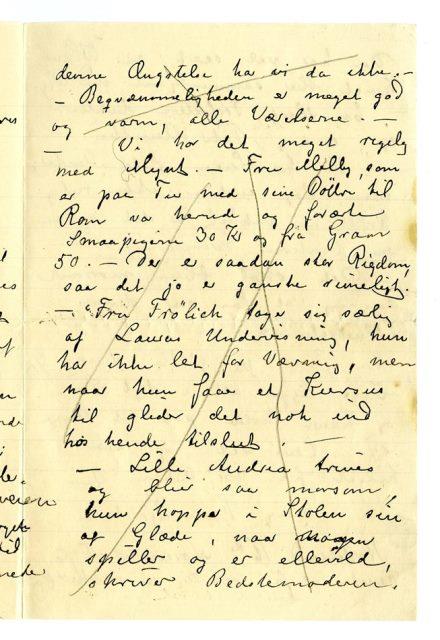 denne Ængstelse har vi da ikke. –
– Beqvemmeligheden er meget god
og varm, alle Værelserne. –
Vi har det meget rigelig
med Mynt. – Fru Milly, som
er paa Tur med sine Døttre til
Rom var herude og forærte
Smaapigerne 30 Kr og fra Gram
50. – Der er saadan stor Rigdom
saa det jo er ganske rimeligt.
– "Fru Frölich tager sig særlig
af Lauras Undervisning, hun
har ikke let for Værning, men
naar hun faar et Kursus
til glider det nok ind
hos hende tilslut. –
– Lille Andrea trives
og blir saa morsom,
hun hopper i Stolen sin
af Glæde, naar nogen
spiller og er ellevild,
skriver Bedstemoderen.